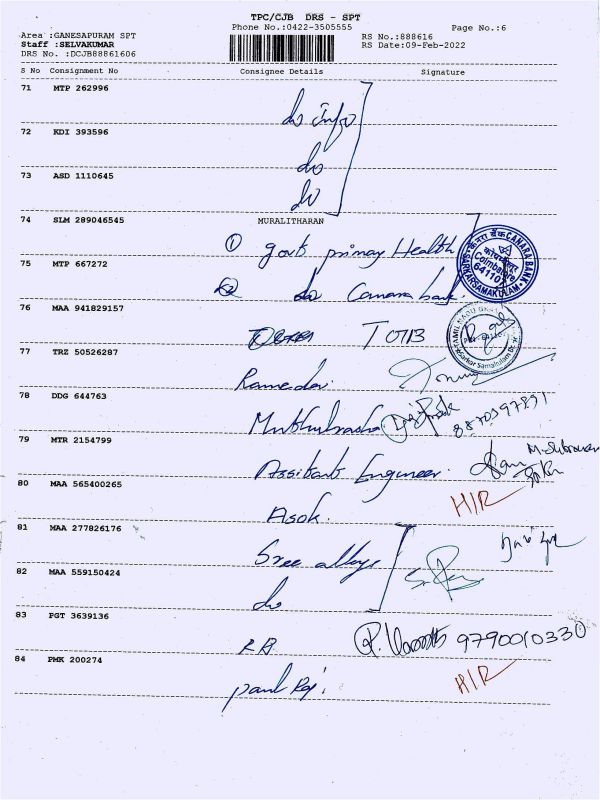 TPC/CJB DRS - SPT
Phone No.:0422-3505555
Page No.:6
Area :GANESAPURAM SPT
RS No.:888616
Staff :SELVAKUMAR
RS Date:09-Feb-2022
DRS No. :DCJB88861606
S No Consignment No Consignee Details Signature
71 MTP 262996
do Info
72 KDI 393596
do
73 ASD 1110645
do
74 SLM 289046545 MURALITHARAN
① govt primary Health
75 MTP 667272
② do Canara bank.
CANARA BANK
Coimbatore
SARKARSAMAKULAM
76 MAA 941829157
TOTB
TAMILNADU
77 TRZ 50526287
Ramedas.
78 DDG 644763
8870597891
79 MTR 2154799
Assistant Engineer.
80 MAA 565400265
H/R
Asok.
81 MAA 277826176
Sree alloys
82 MAA 559150424
do
83 PGT 3639136
R.B.
9790010330
84 PMK 200274
H/R
paul Raj.